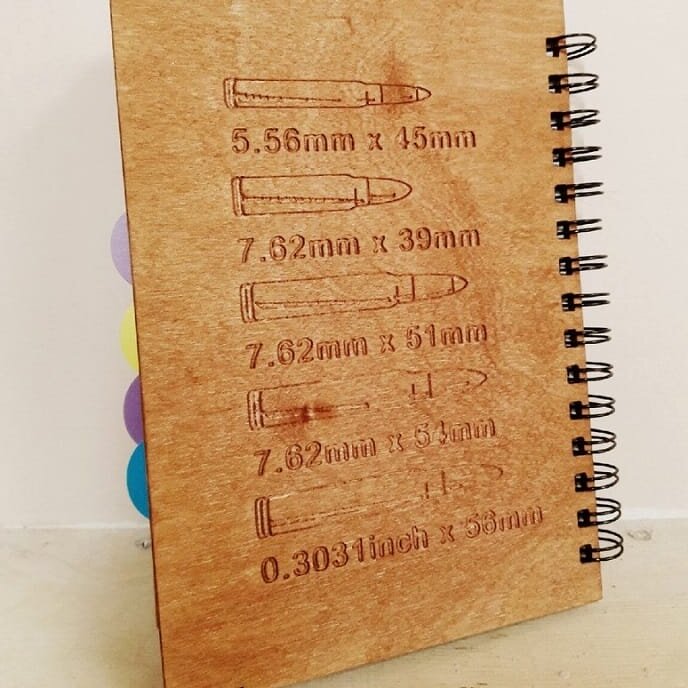 5.56mm x 45mm
7.62mm x 39mm
7.62mm x 51mm
7.62mm x 54mm
0.3031inch x 56mm